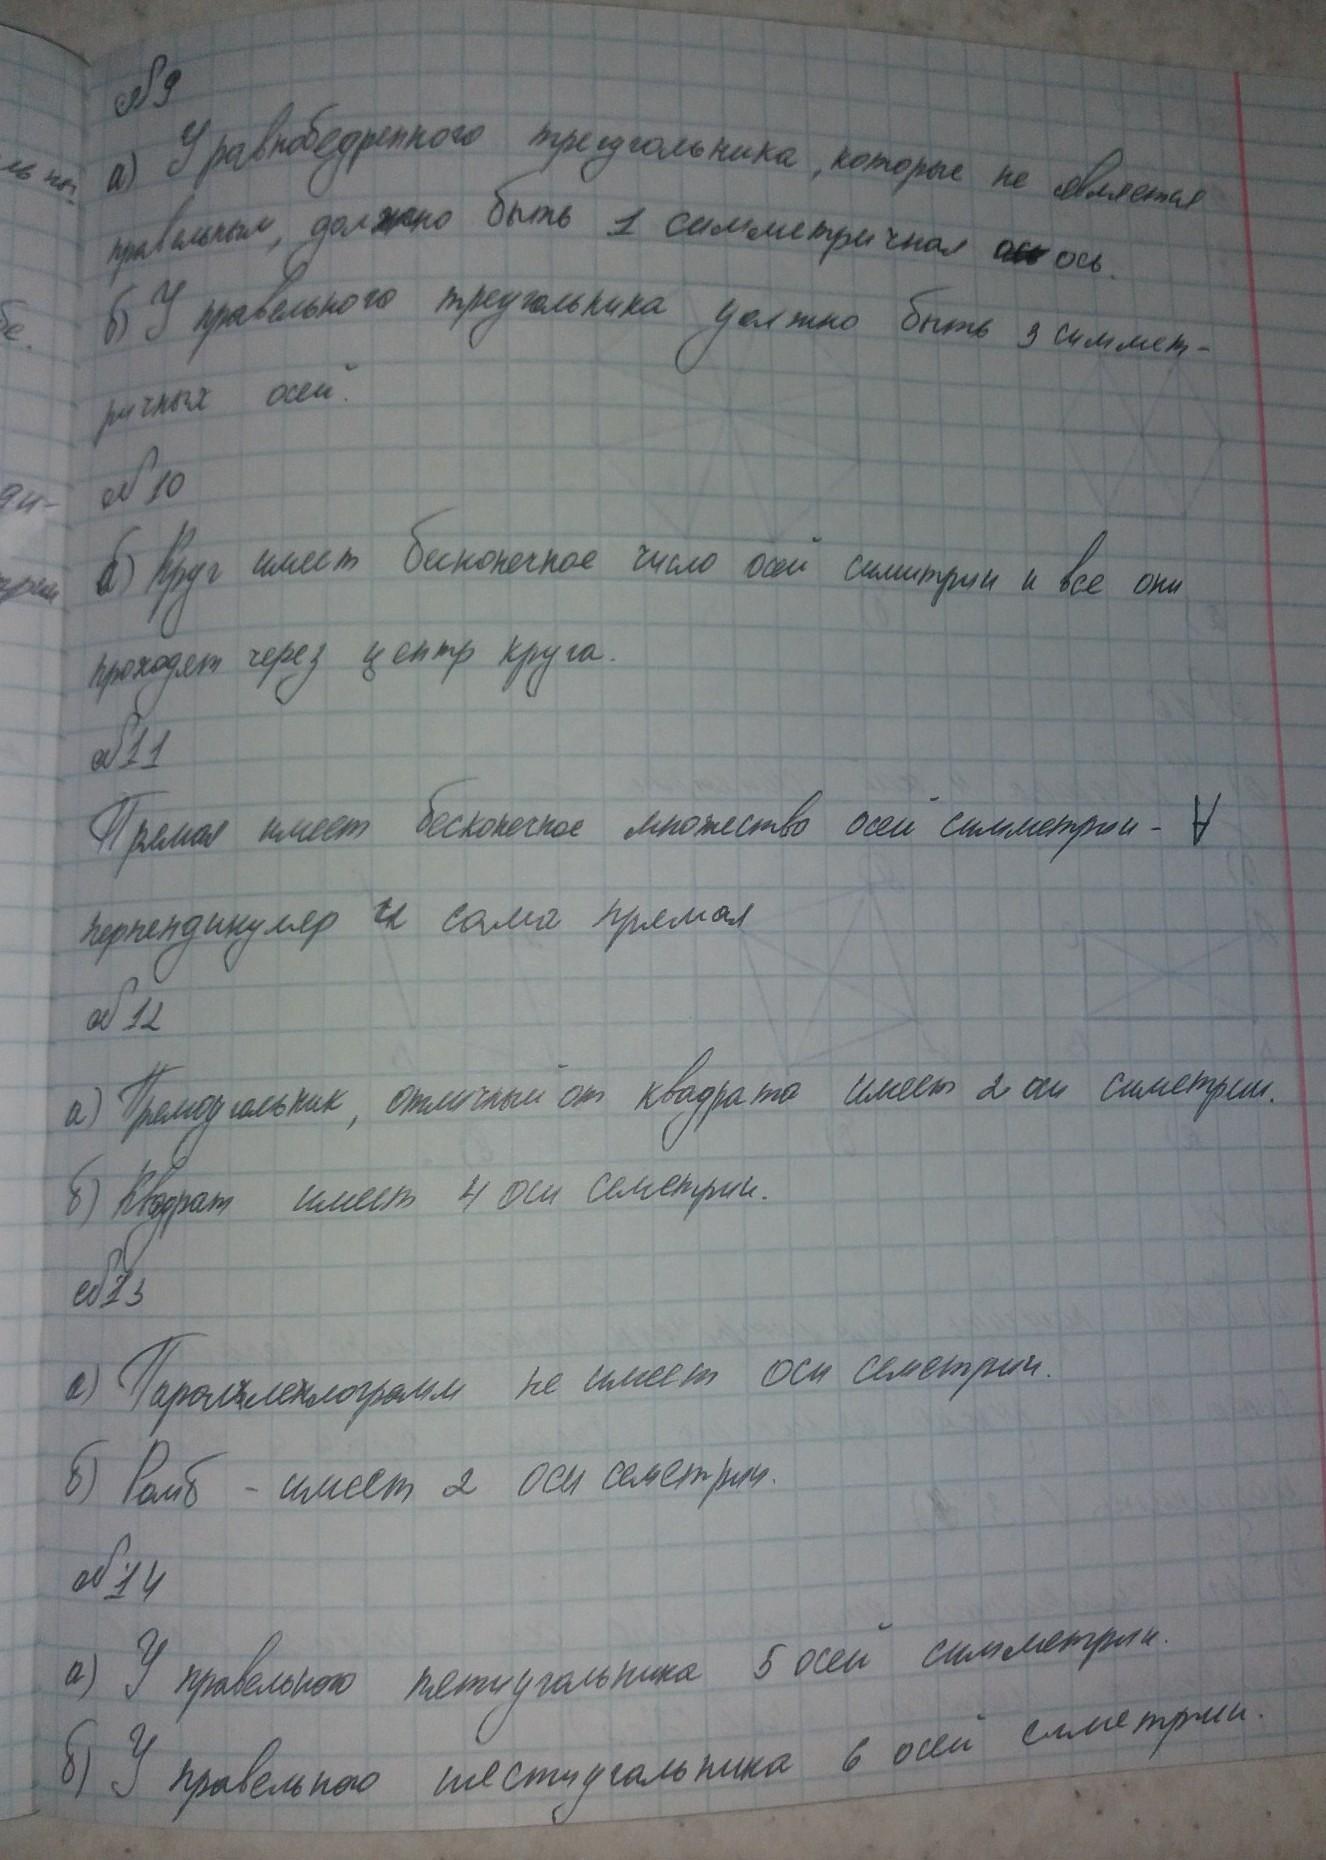 №9
а) У равнобедренного треугольника, которые не является
правельным, должно быть 1 симметричная ось.
б) У правельного треугольника должно быть 3 симмет-
ричных осей.
№10
б) Круг имеет бесконечное число осей симитрии и все они
проходят через центр круга.
№11
Прямая имеет бесконечное множество осей симметрии - ∀
перпендикуляр и сама прямая
№12
а) Прямоугольник, отличный от квадрата имеет 2 оси симетрии.
б) Квадрат имеет 4 оси семетрии.
№13
а) Параллелограмм не имеет оси семетрии.
б) Ромб - имеет 2 оси семетрии.
№14
а) У правельного пятиугольника 5 осей симметрии.
б) У правельного шестиугольника 6 осей симетрии.